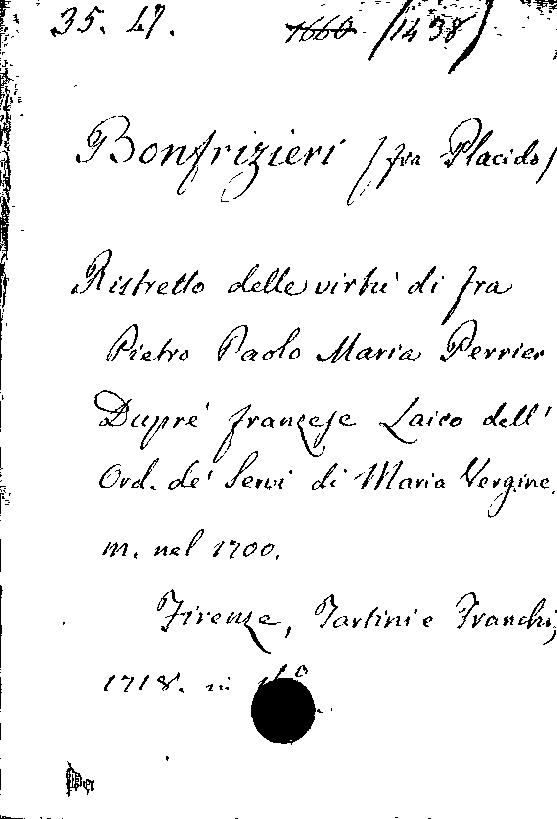 35. 47. 1660 (1438)
Bonfrizieri (fra Placido)
Ristretto delle virtù di fra
Pietro Paolo Maria Perrier
Dupré franzese Laico dell'
Ord. de' Servi di Maria Vergine.
m. nel 1700.
Firenze, Tartini e Franchi,
1718. in